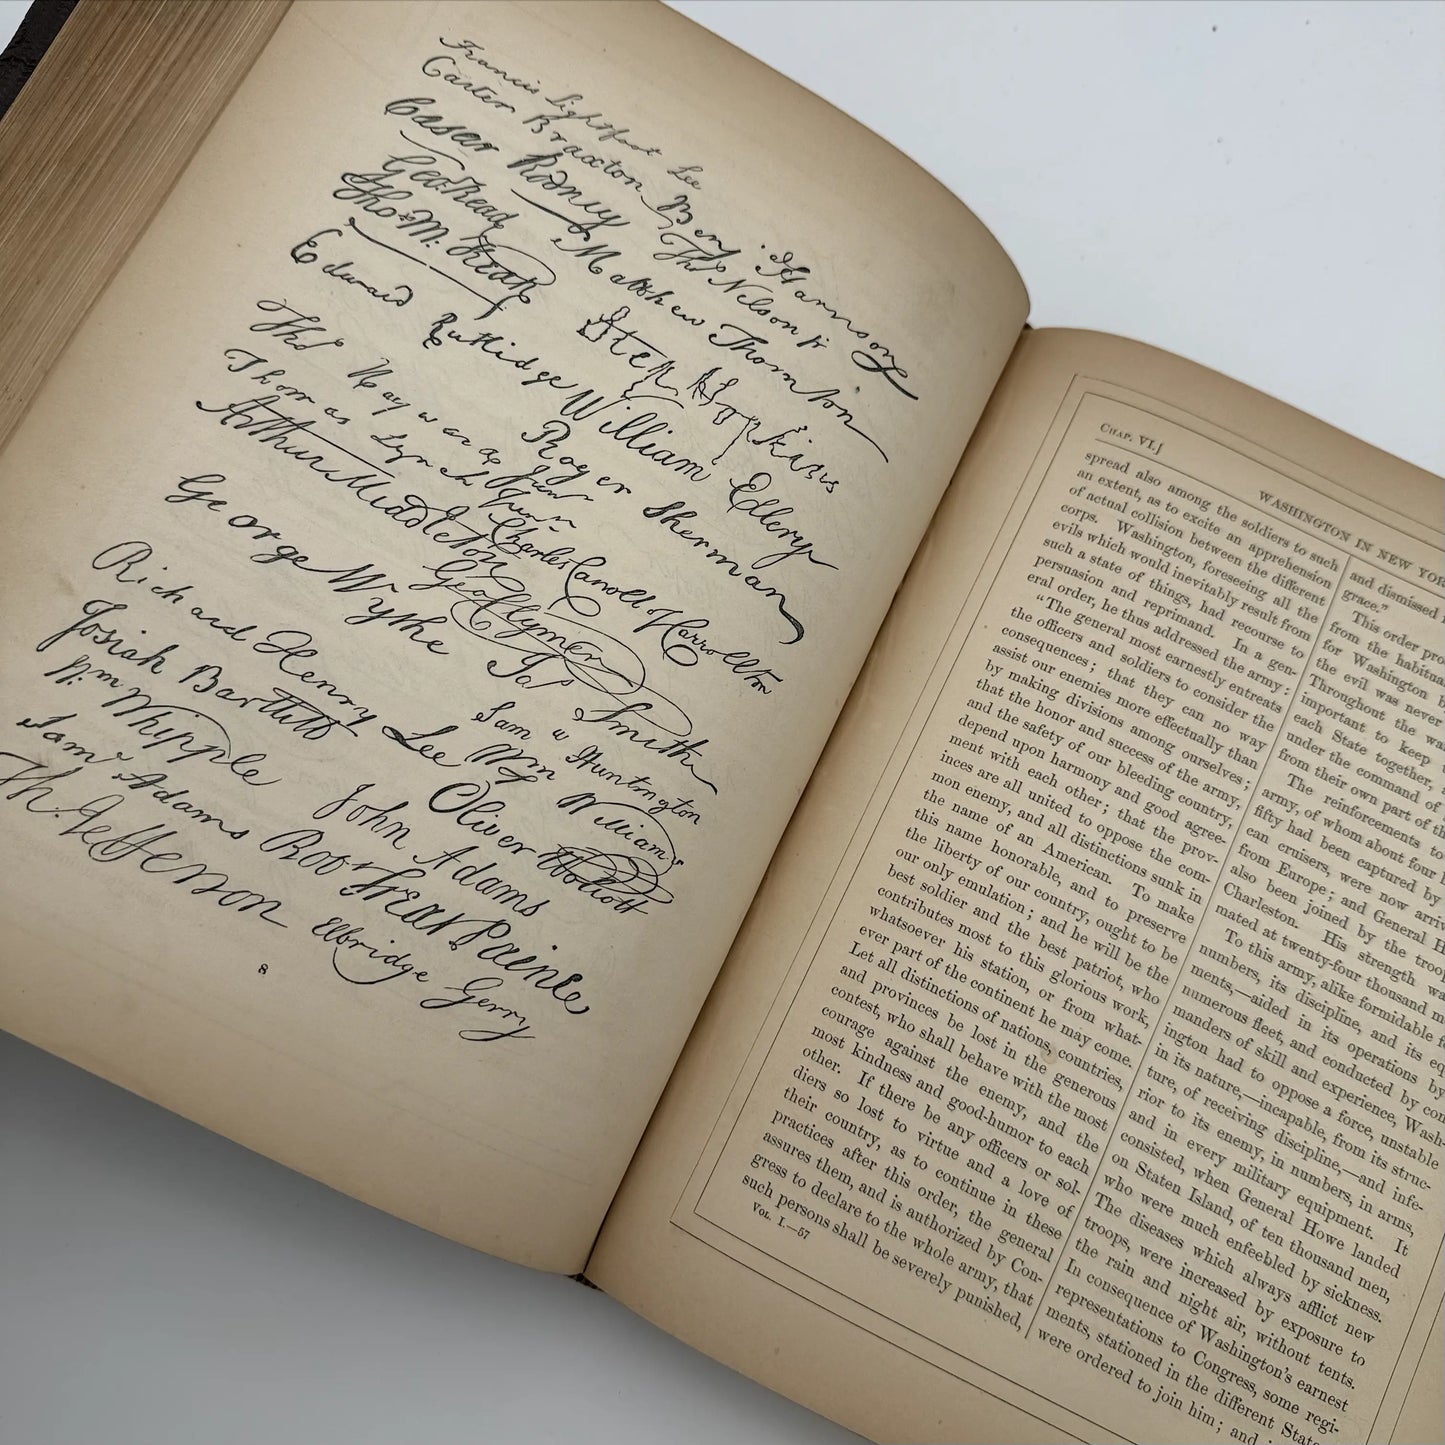 Francis Lightfoot Lee
Carter Braxton Benj Harrison
Caesar Rodney Thos Nelson jr
Geo. Read Matthew Thornton
Tho M. Kean Step Hopkins
Edward Rutlidge William Ellery
Thos Hayward Junr Roger Sherman
Thomas Lynch Junr Charles Carroll of Carrollton
Arthur Middleton
Geo Clymer
George Wythe Jas Smith
Richard Henry Lee Saml Huntington
Josiah Bartlett Wm Williams
Wm Whipple Oliver Wolcott
Saml Adams John Adams
Th. Jefferson Robt Treat Paine
Elbridge Gerry
8
CHAP. VI.]
WASHINGTON IN NEW YOR
spread also among the soldiers to such
an extent, as to excite an apprehension
of actual collision between the different
corps. Washington, foreseeing all the
evils which would inevitably result from
such a state of things, had recourse to
persuasion and reprimand. In a gen-
eral order, he thus addressed the army:
"The general most earnestly entreats
the officers and soldiers to consider the
consequences; that they can no way
assist our enemies more effectually than
by making divisions among ourselves;
that the honor and success of the army,
and the safety of our bleeding country,
depend upon harmony and good agree-
ment with each other; that the prov-
inces are all united to oppose the com-
mon enemy, and all distinctions sunk in
the name of an American. To make
this name honorable, and to preserve
the liberty of our country, ought to be
our only emulation; and he will be the
best soldier and the best patriot, who
contributes most to this glorious work,
whatsoever his station, or from what-
ever part of the continent he may come.
Let all distinctions of nations, countries,
and provinces be lost in the generous
contest, who shall behave with the most
courage against the enemy, and the
most kindness and good-humor to each
other. If there be any officers or sol-
diers so lost to virtue and a love of
their country, as to continue in these
practices after this order, the general
assures them, and is authorized by Con-
gress to declare to the whole army, that
such persons shall be severely punished,
VOL. I.—57
and dismissed
grace."
This order pro
from the habitua
for Washington b
the evil was never
Throughout the wa
important to keep
each State together,
under the command of
from their own part of th
The reinforcements to
army, of whom about four
fifty had been captured by
can cruisers, were now arri
from Europe; and General H
also been joined by the troo
Charleston. His strength wa
mated at twenty-four thousand m
To this army, alike formidable f
numbers, its discipline, and its eq
ments,—aided in its operations by
numerous fleet, and conducted by com
manders of skill and experience, Wash-
ington had to oppose a force, unstable
in its nature,—incapable, from its struc-
ture, of receiving discipline,—and infe-
rior to its enemy, in numbers, in arms,
and in every military equipment. It
consisted, when General Howe landed
on Staten Island, of ten thousand men,
who were much enfeebled by sickness.
The diseases which always afflict new
troops, were increased by exposure to
the rain and night air, without tents.
In consequence of Washington's earnest
representations to Congress, some regi-
ments, stationed in the different State
were ordered to join him; and